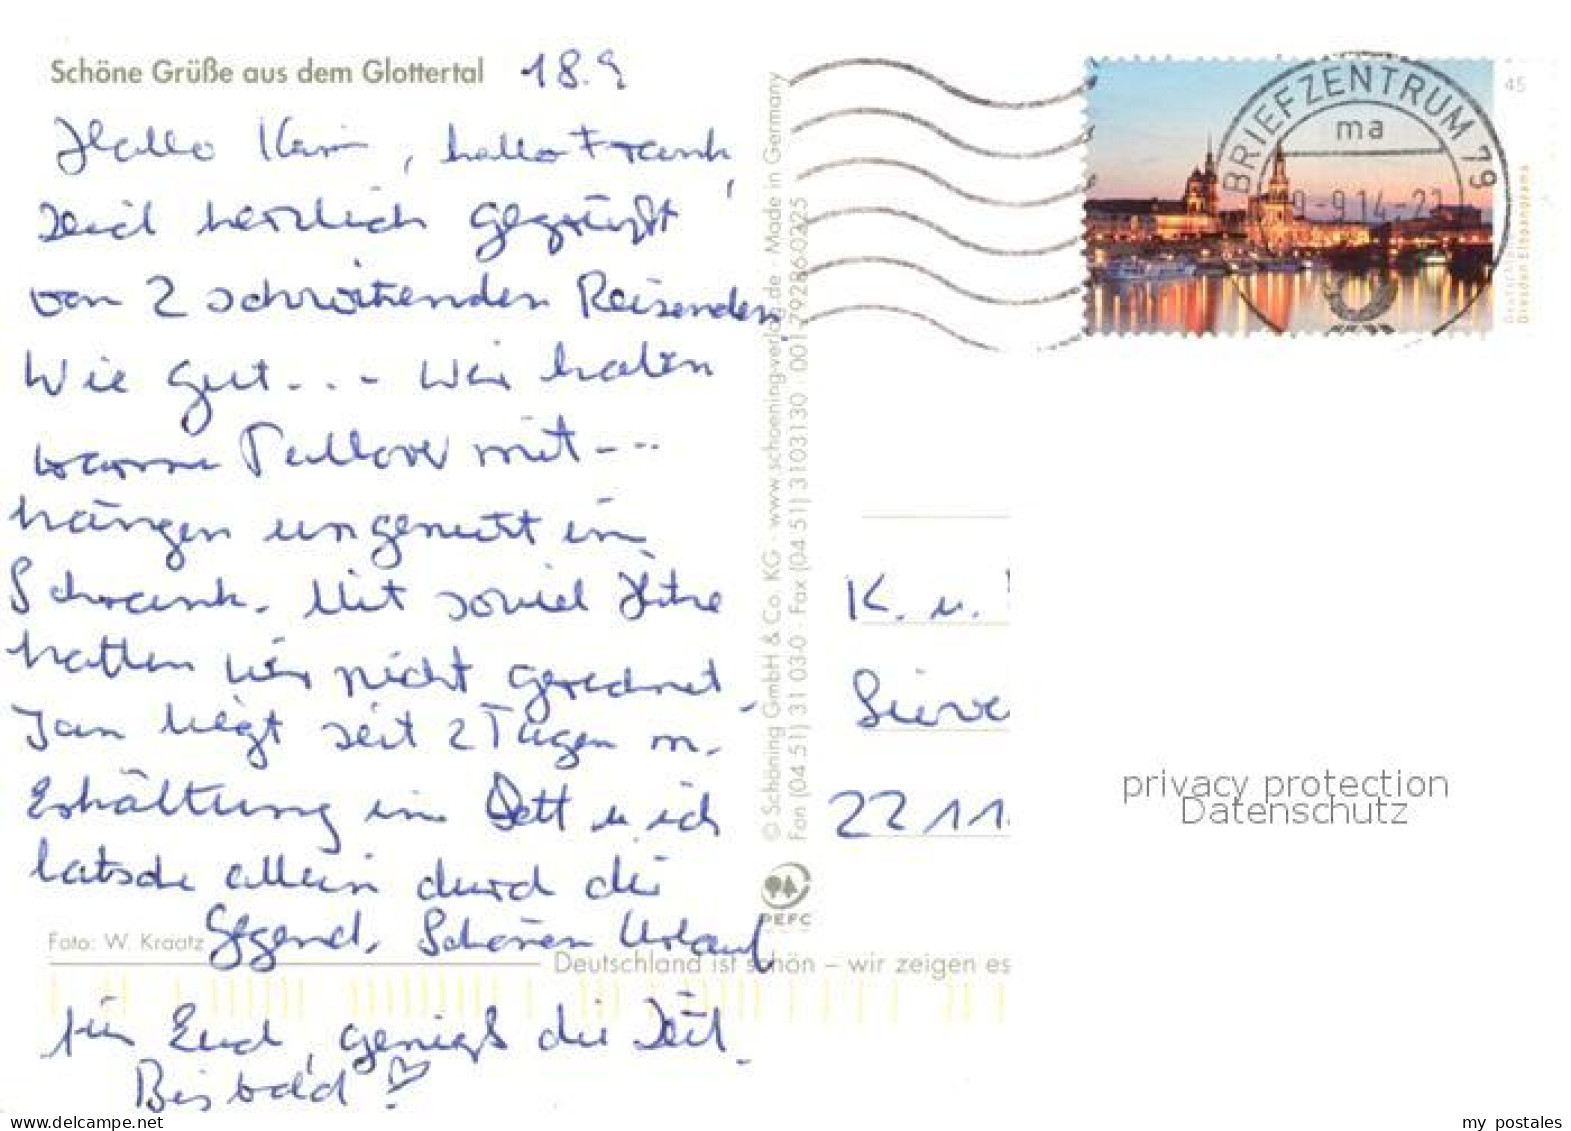 Schöne Grüße aus dem Glottertal 18.9
Hallo Karin, hallo Frank,
Seid herzlich gegrüßt
von 2 schwitzenden Reisenden
Wie gut... - Wir haben
warme Pullover mit - - -
hängen ungenutzt im
Schrank. Mit soviel Hitze
hatten wir nicht gerechnet.
Jan liegt seit 2 Tagen m.
Erkältung im Bett u. ich
latsche allein durch die
Gegend. Schönen Urlaub
für Euch, genießt die Zeit.
Bis bald
Foto: W. Kraatz
Deutschland ist schön – wir zeigen es
© Schöning GmbH & Co. KG · www.schoening-verlag.de · Made in Germany
Fon (04 51) 31 03-0 · Fax (04 51) 3103130 · 001 79286 0225
PEFC
BRIEFZENTRUM 79
ma
9-9.14-22
45
Dresden Elbpanorama
K. u.
22 11
privacy protection
Datenschutz
www.delcampe.net
my_postales